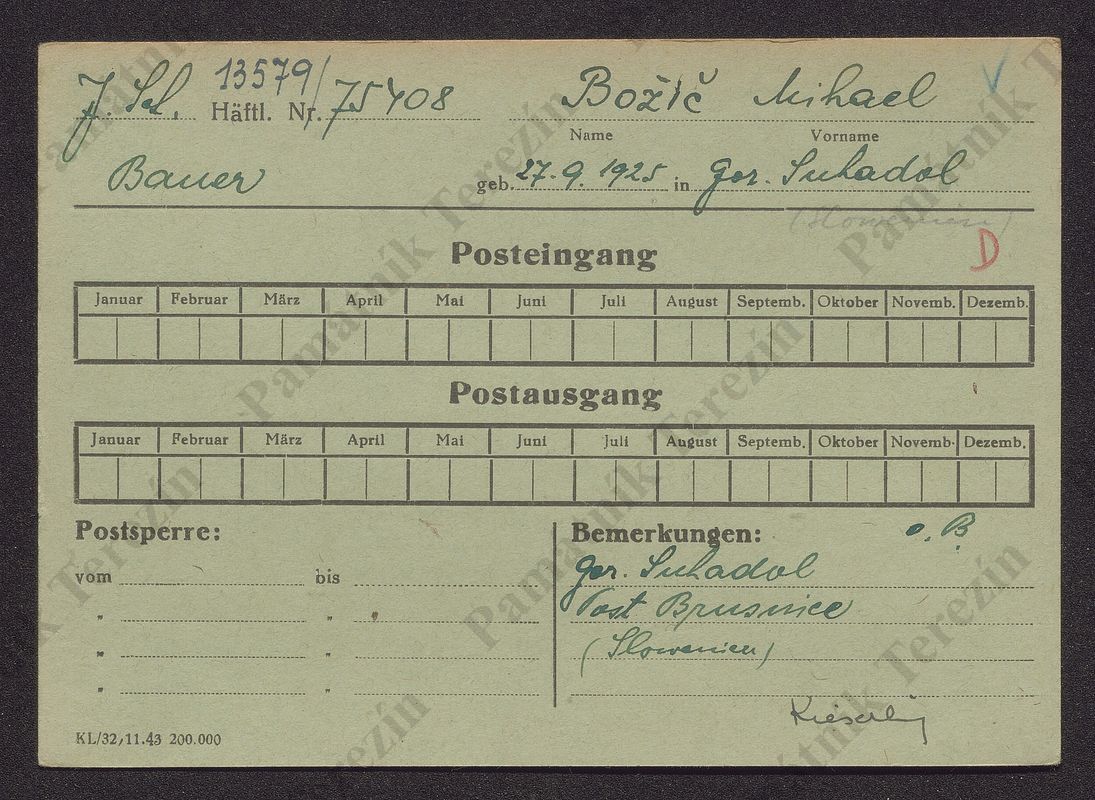 J. Sl. 13579/
Häftl. Nr. 75408 Božič Mihael
Name Vorname
Bauer geb. 27.9.1925 in Gor. Suhadol
(Slowenien)
D
Posteingang
Januar Februar März April Mai Juni Juli August Septemb. Oktober Novemb. Dezemb.
Postausgang
Januar Februar März April Mai Juni Juli August Septemb. Oktober Novemb. Dezemb.
Postsperre: Bemerkungen: o. B.
vom bis Gor. Suhadol
" " Post Brusnice
" " (Slowenien)
" "
KL/32, 11.43 200.000
Památník Terezín